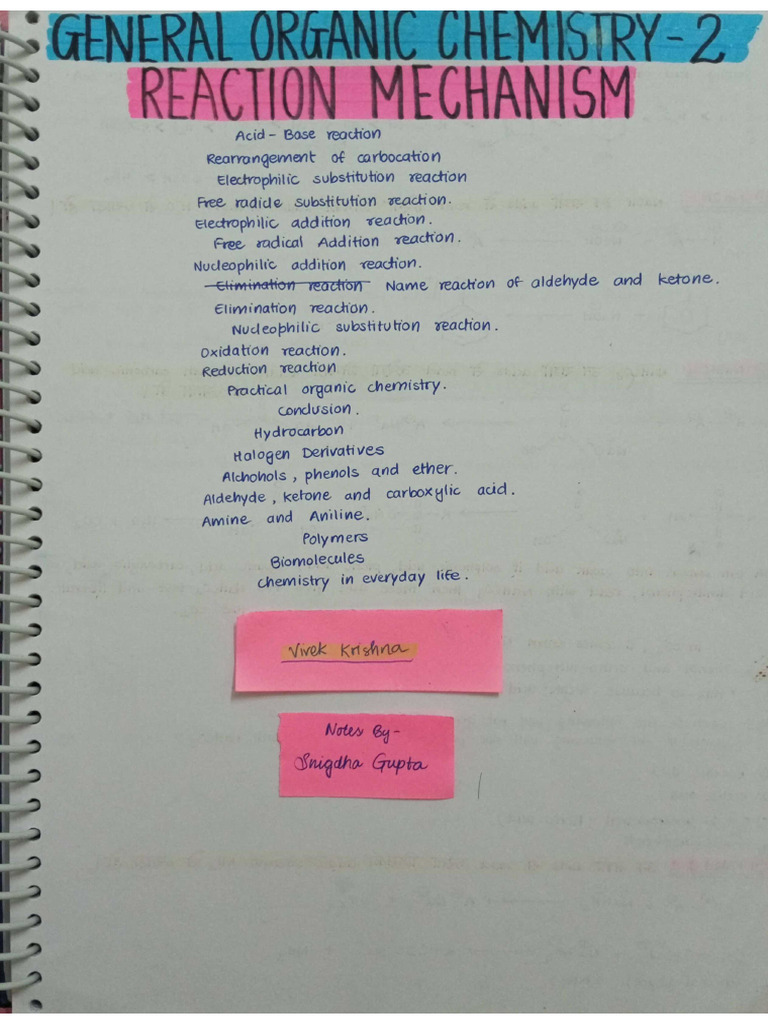 GENERAL ORGANIC CHEMISTRY-2
REACTION MECHANISM
Acid-Base reaction
Rearrangement of carbocation
Electrophilic substitution reaction
Free radicle substitution reaction.
Electrophilic addition reaction.
Free radical Addition reaction.
Nucleophilic addition reaction.
Elimination reaction Name reaction of aldehyde and ketone.
Elimination reaction.
Nucleophilic substitution reaction.
Oxidation reaction.
Reduction reaction
Practical organic chemistry.
Conclusion.
Hydrocarbon
Halogen Derivatives
Alchohols, phenols and ether.
Aldehyde, ketone and carboxylic acid.
Amine and Aniline.
Polymers
Biomolecules
Chemistry in everyday life.
Vivek Krishna
Notes By-
Snigdha Gupta